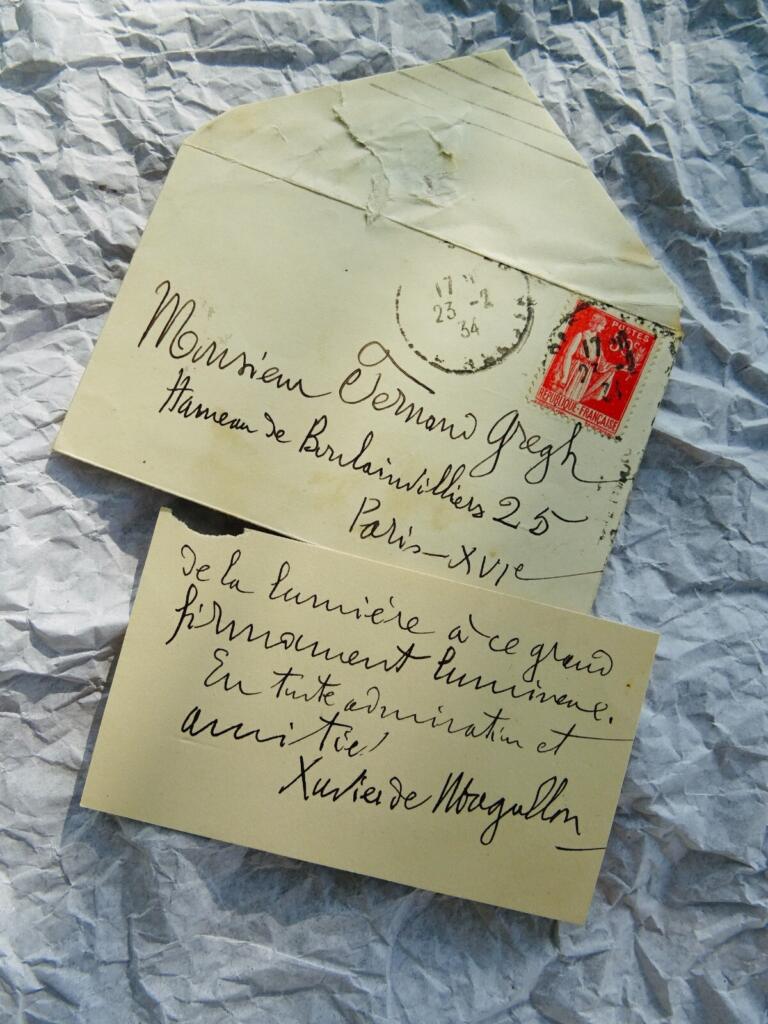 17 H
23 -2
34
POSTES
50c
17
RÉPUBLIQUE-FRANÇAISE
Monsieur Fernand Gregh
Hameau de Boulainvilliers 25
Paris-XVIe
de la lumière à ce grand
firmament lumineux.
En toute admiration et
amitié!
Xavier de Magallon